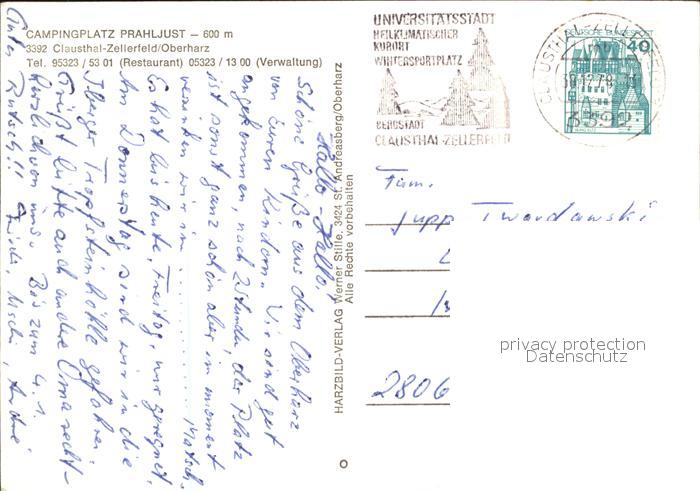 CAMPINGPLATZ PRAHLJUST — 600 m
3392 Clausthal-Zellerfeld/Oberharz
Tel. 95323 / 53 01 (Restaurant) 05323 / 13 00 (Verwaltung)
Hallo - Hallo!
Schöne Grüße aus dem Oberharz
von Euren Kindern. Wir sind gut
angekommen, nach 2 Stunden, der Platz
ist sonst ganz schön aber im moment
versinken wir im .......... Matsch.
Es hat bis heute, Freitag, nur geregnet.
Am Donnerstag sind wir in die
Iberger Tropfsteinhöhle gefahren.
Grüßt bitte auch andere Oma recht-
herzlich von uns. Bis zum 4.1.
Guten Rutsch!!
HARZBILD-VERLAG Werner Stille, 3424 St. Andreasberg/Oberharz
Alle Rechte vorbehalten
UNIVERSITÄTSSTADT
HEILKLIMATISCHER
KURORT
WINTERSPORTPLATZ
BERGSTADT
CLAUSTHAL-ZELLERFELD
CLAUSTHAL-ZELLERFELD
3392
DEUTSCHE BUNDESPOST
40
Fam.
Jupp Twardawski
2806
privacy protection
Datenschutz